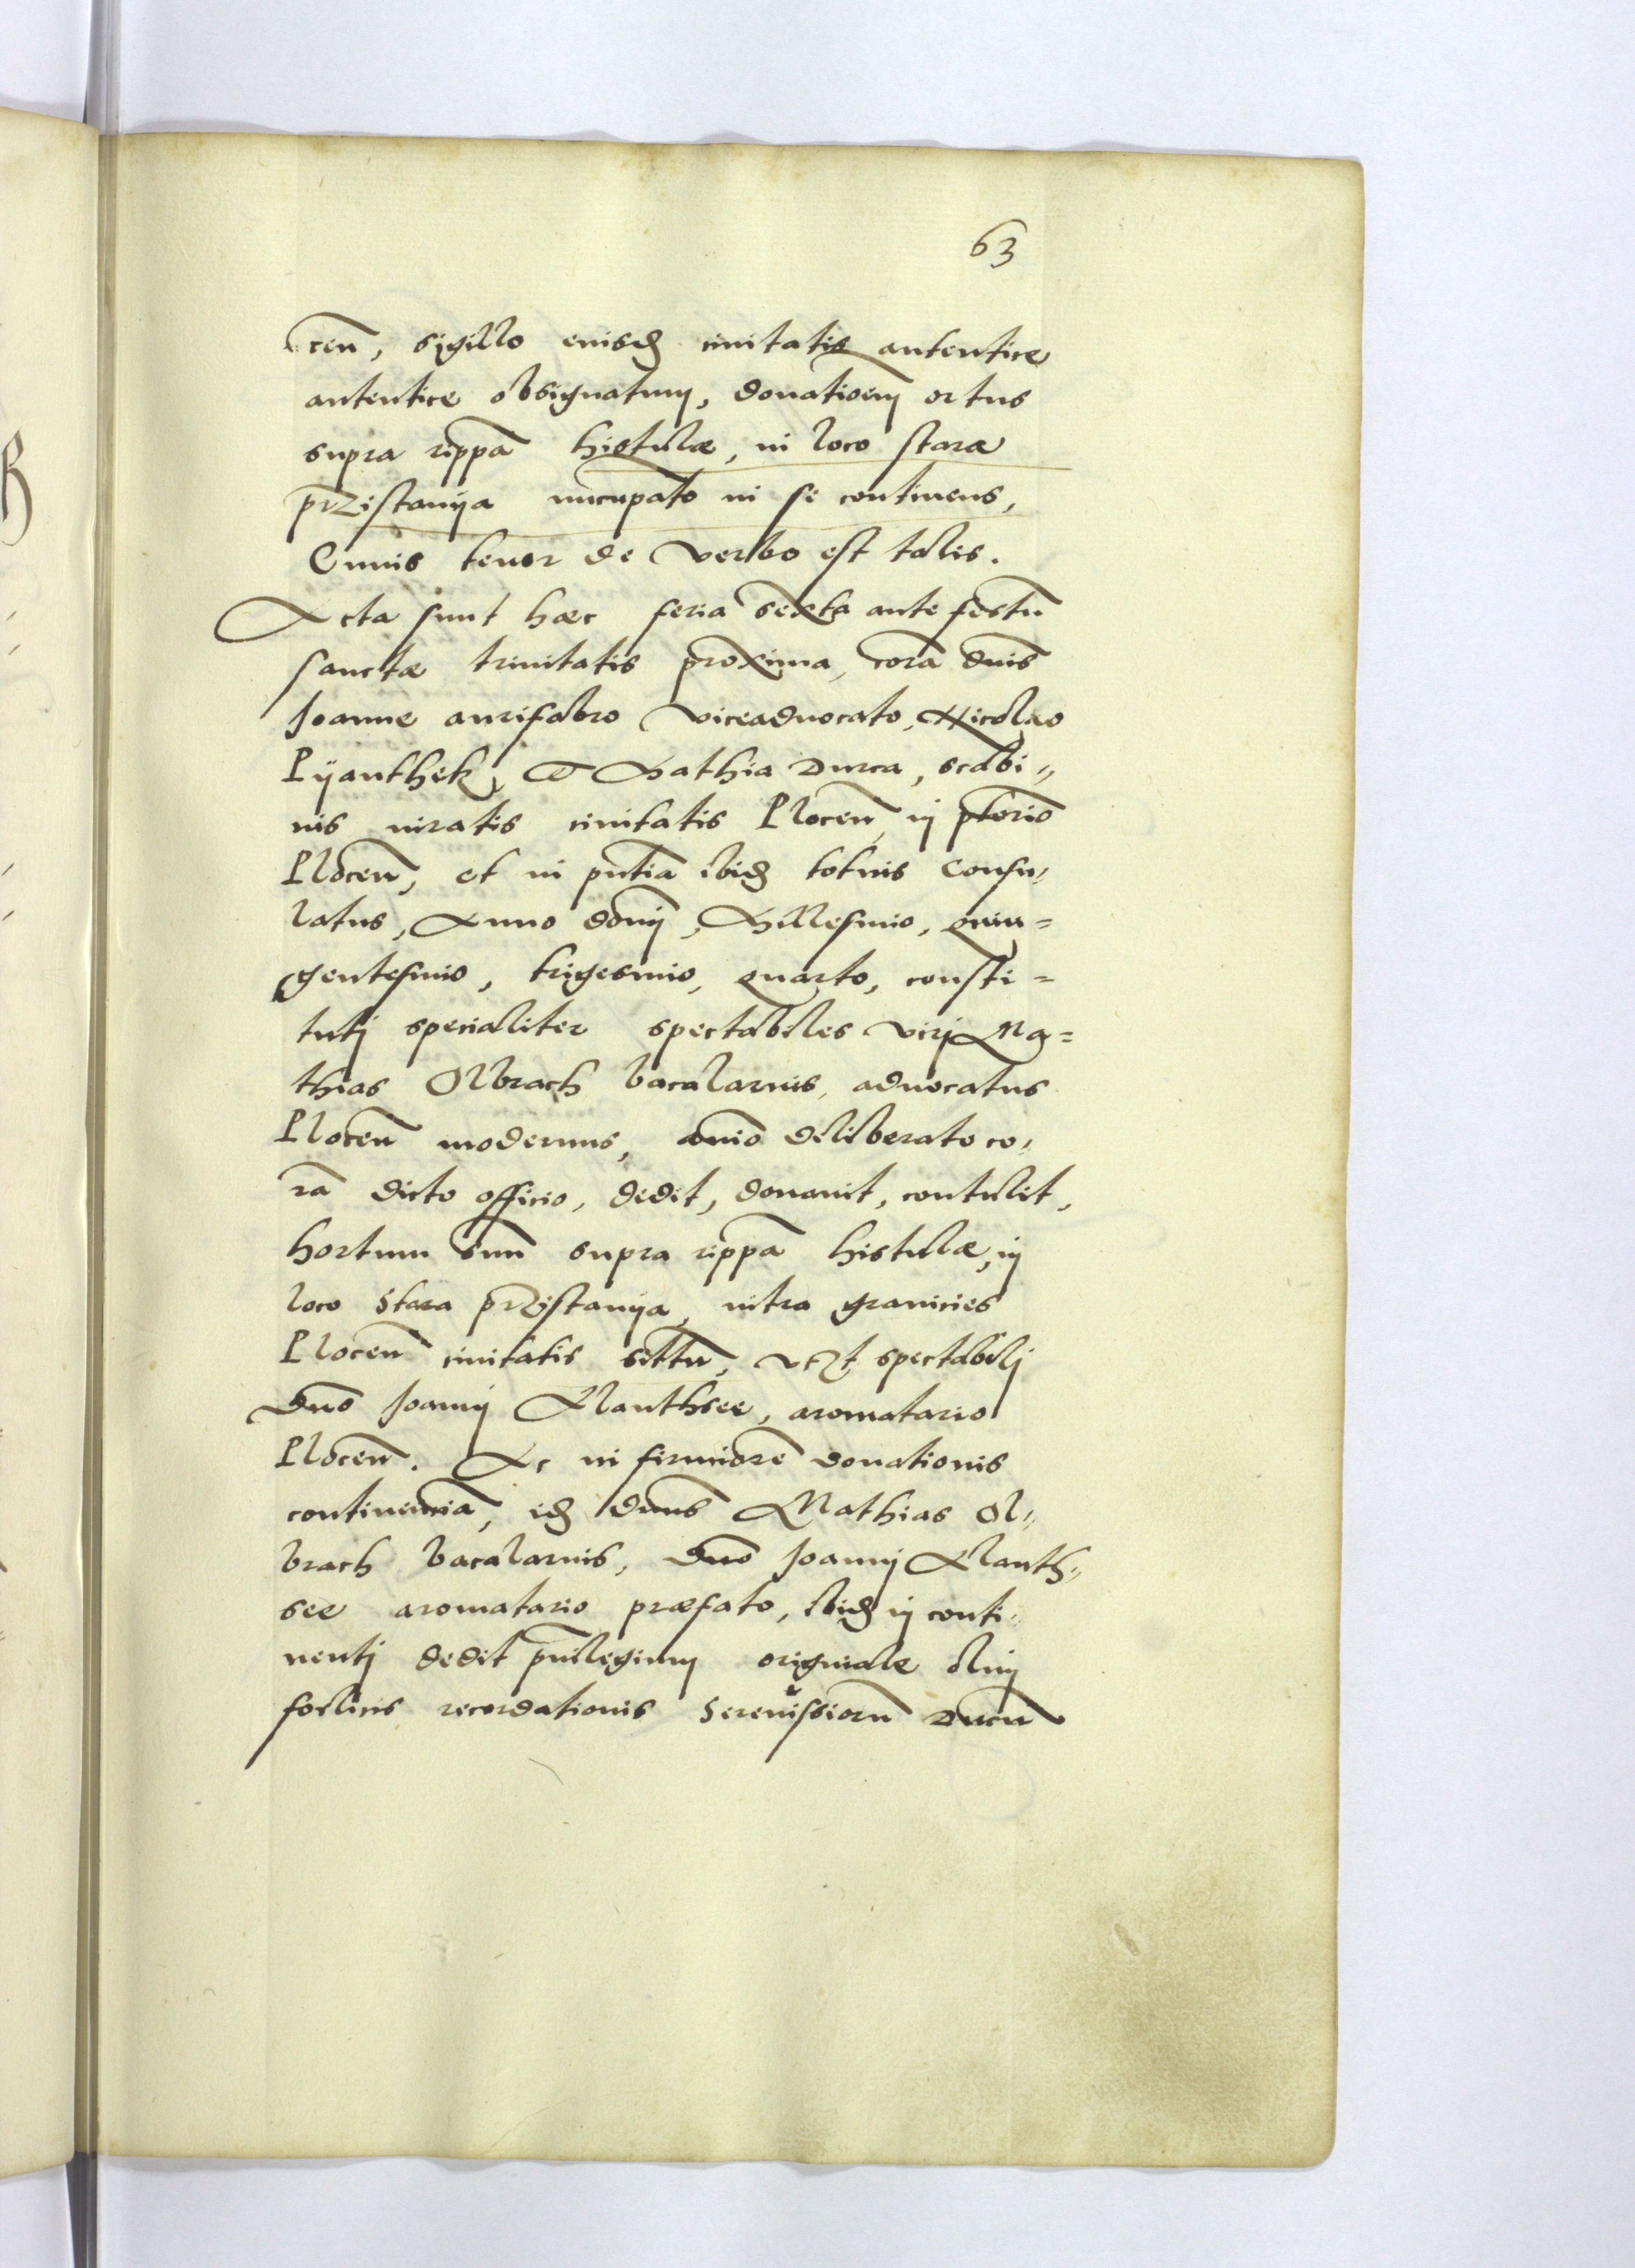 63
cen̄, sigillo eiusd᷒ ciuitatis autentice
autentice obsignatum, donatioem ortus
supra rippā histulæ, in loco stara
przistanÿa nūcupato in se continens,
Cuius tenor de verbo est talis.
Acta sunt hæc feria sexta ante festū
sanctæ trinitatis proxima, corā dnis
Joanne aurifabro viceaduocato, Nicolao
Pÿanthek, et Mathia Durca, scabi„
nis iuratis ciuitatis Plocen̄, in ptorio
Plocen̄, et in pntia ibid᷒ totius Consu„
latus, Anno domj, Millesimo, quin=
gentesimo, trigesimo, quarto, consti=
tutj specialiter spectabiles virj Ma=
thias Olbrach bacalarius, aduocatus
Plocen̄ modernus, anīo deliberato co„
rā dicto officio, dedit, donauit, contulit,
hortum suū supra rippā histulæ, in
loco stara przistanÿa, intra granicies
Plocen̄ ciuitatis sittū, vczt spectabilj
Dno Joannj Klanthsee, aromatario
Plocen̄. Ac in firmiorē donationis
continenciā, id᷒ dnus Mathias Ol„
brach bacalarius, Dno Joannj Klanth„
see aromatario præfato, ibid᷒ in conti„
nentj dedit priuilegium originale olim
foelicis recordationis Serenissiorū Ducū